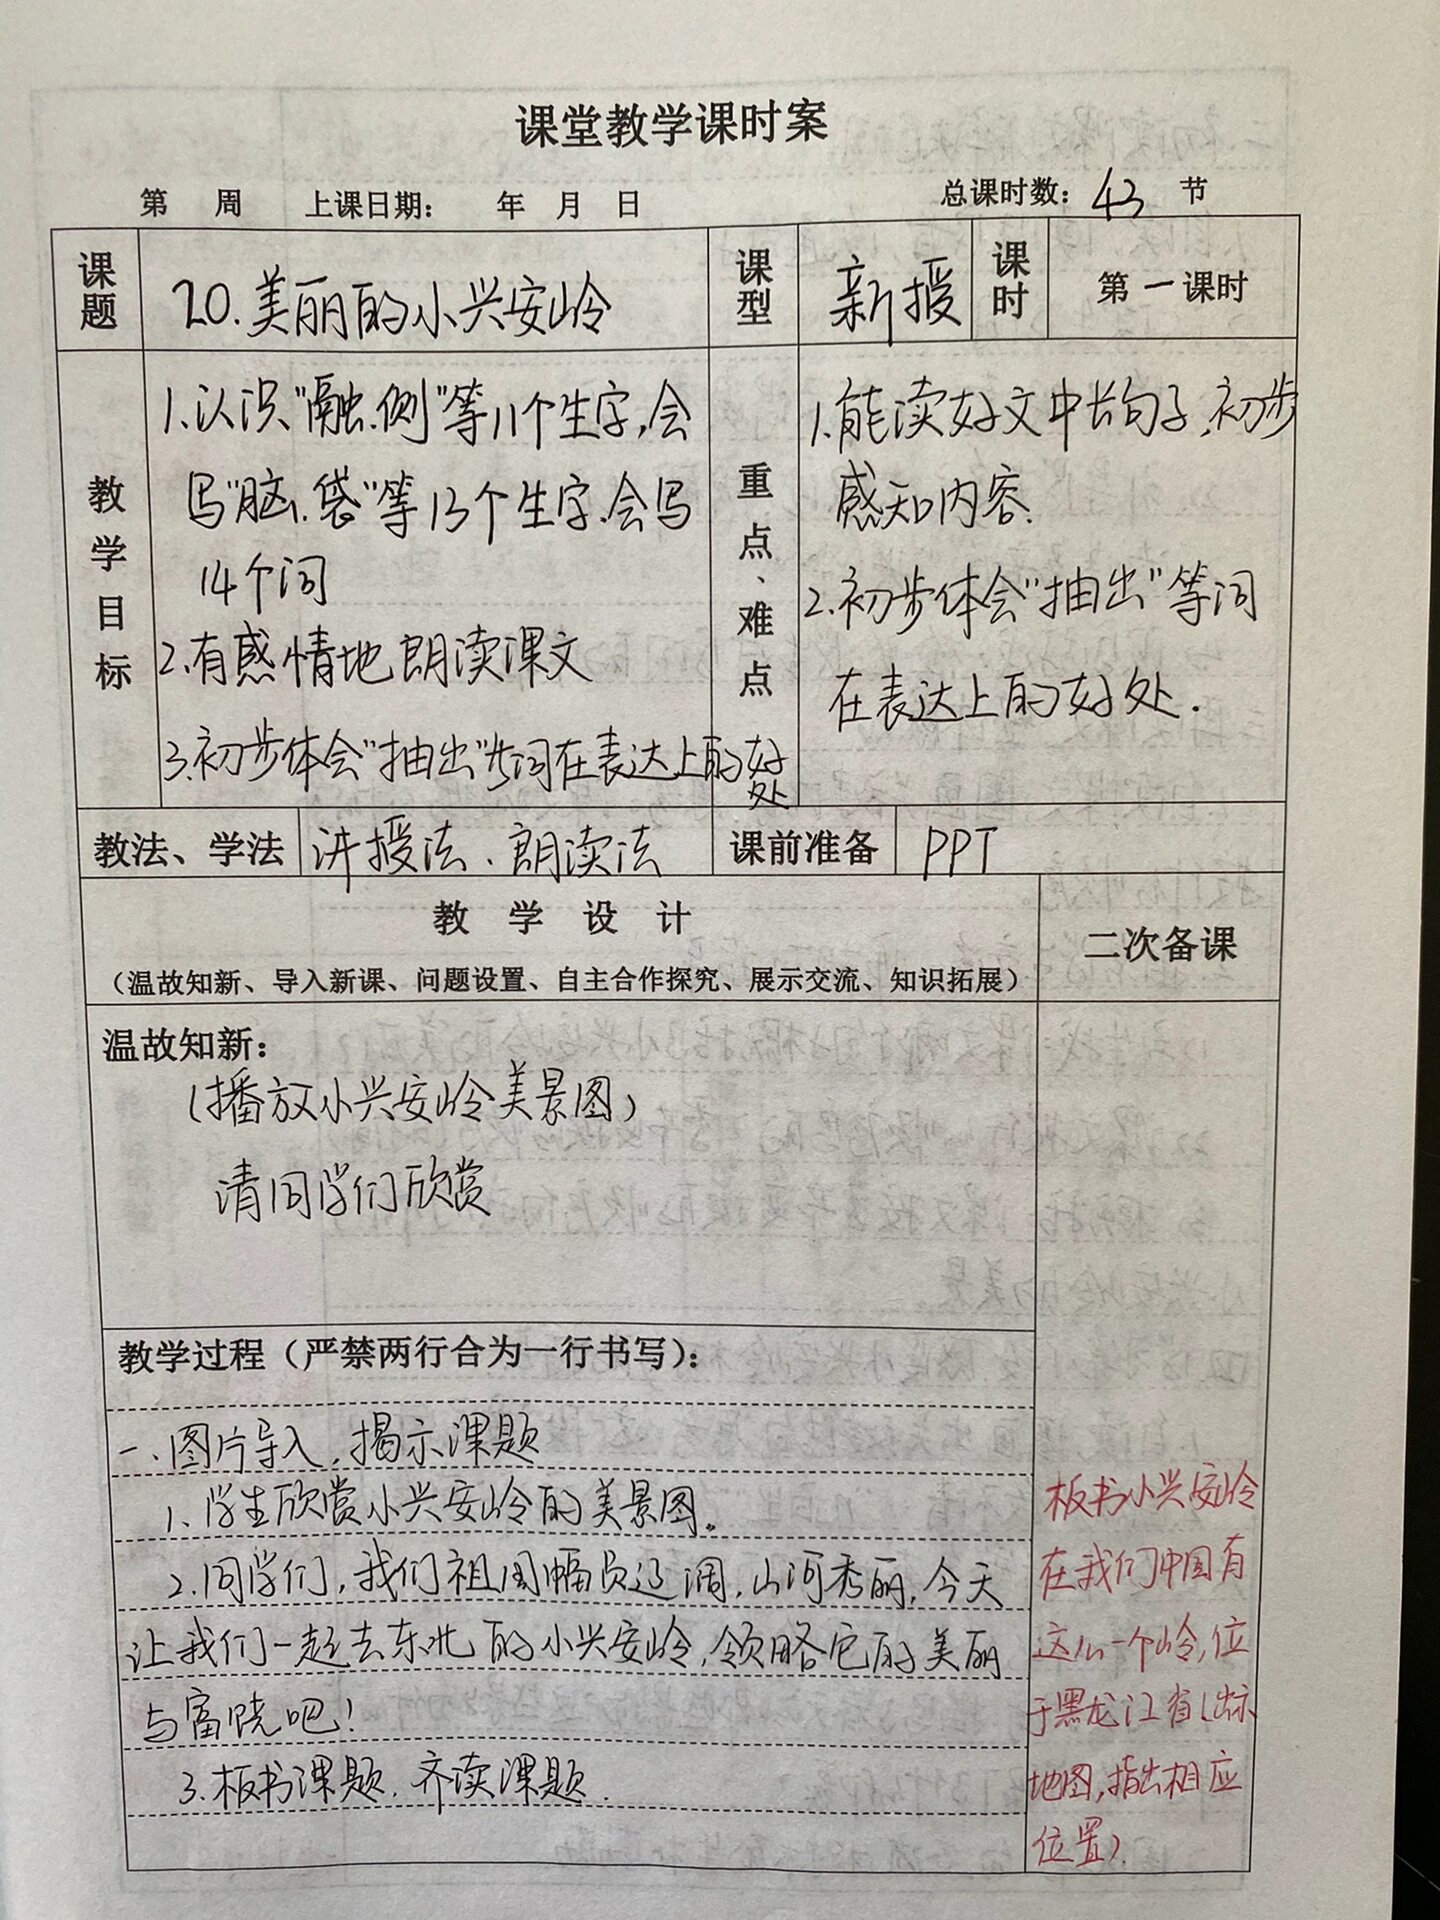 课堂教学课时案
第 周 上课日期： 年 月 日 总课时数：43 节
课题 20.美丽的小兴安岭 课型 新授 课时 第一课时
教学目标
1.认识"融、侧"等11个生字，会
写"脑、袋"等13个生字、会写
14个词
2.有感情地朗读课文
3.初步体会"抽出"等词在表达上的好
处
重点、难点
1.能读好文中长句子，初步
感知内容.
2.初步体会"抽出"等词
在表达上的好处.
教法、学法 讲授法、朗读法 课前准备 PPT
教 学 设 计
（温故知新、导入新课、问题设置、自主合作探究、展示交流、知识拓展）
二次备课
温故知新：
（播放小兴安岭美景图）
请同学们欣赏
教学过程（严禁两行合为一行书写）：
一、图片导入，揭示课题
1、学生欣赏小兴安岭的美景图。
2.同学们，我们祖国幅员辽阔，山河秀丽，今天
让我们一起去东北的小兴安岭，领略它的美丽
与富饶吧！
3.板书课题.齐读课题.
板书小兴安岭
在我们中国有
这么一个岭，位
于黑龙江省（出示
地图，指出相应
位置）.